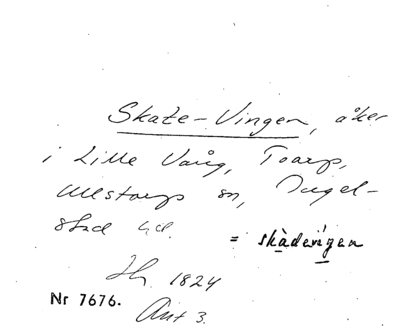 Skate-Vingen, åker
i Lille Vång, Toarp,
Ullstorps sn, Ingel-
stad hd. = skàdeviɳen
Ih. 1824
Nr 7676.
Ant 3.